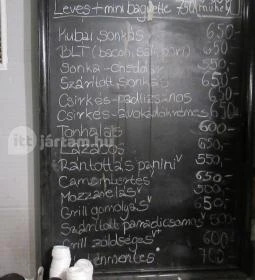 Leves + mini baguette 750
Kubai sonkás 650-
BLT (bacon, sali, pari) 650-
Sonka-cheddar 550-
Szárított sonkás 650
Csirkés-padlizsános 650-
Csirkés-avokádókrémes 650-
Tonhalas 600-
Lazacos 650-
Rántottás panini v 550-
Camembertes v 650-
Mozzarellás v 500-
Grill gomolyás v 650-
Szárított paradicsomos v 500-
Grill zöldséges v 600-
mentes 700
itt jártam.hu